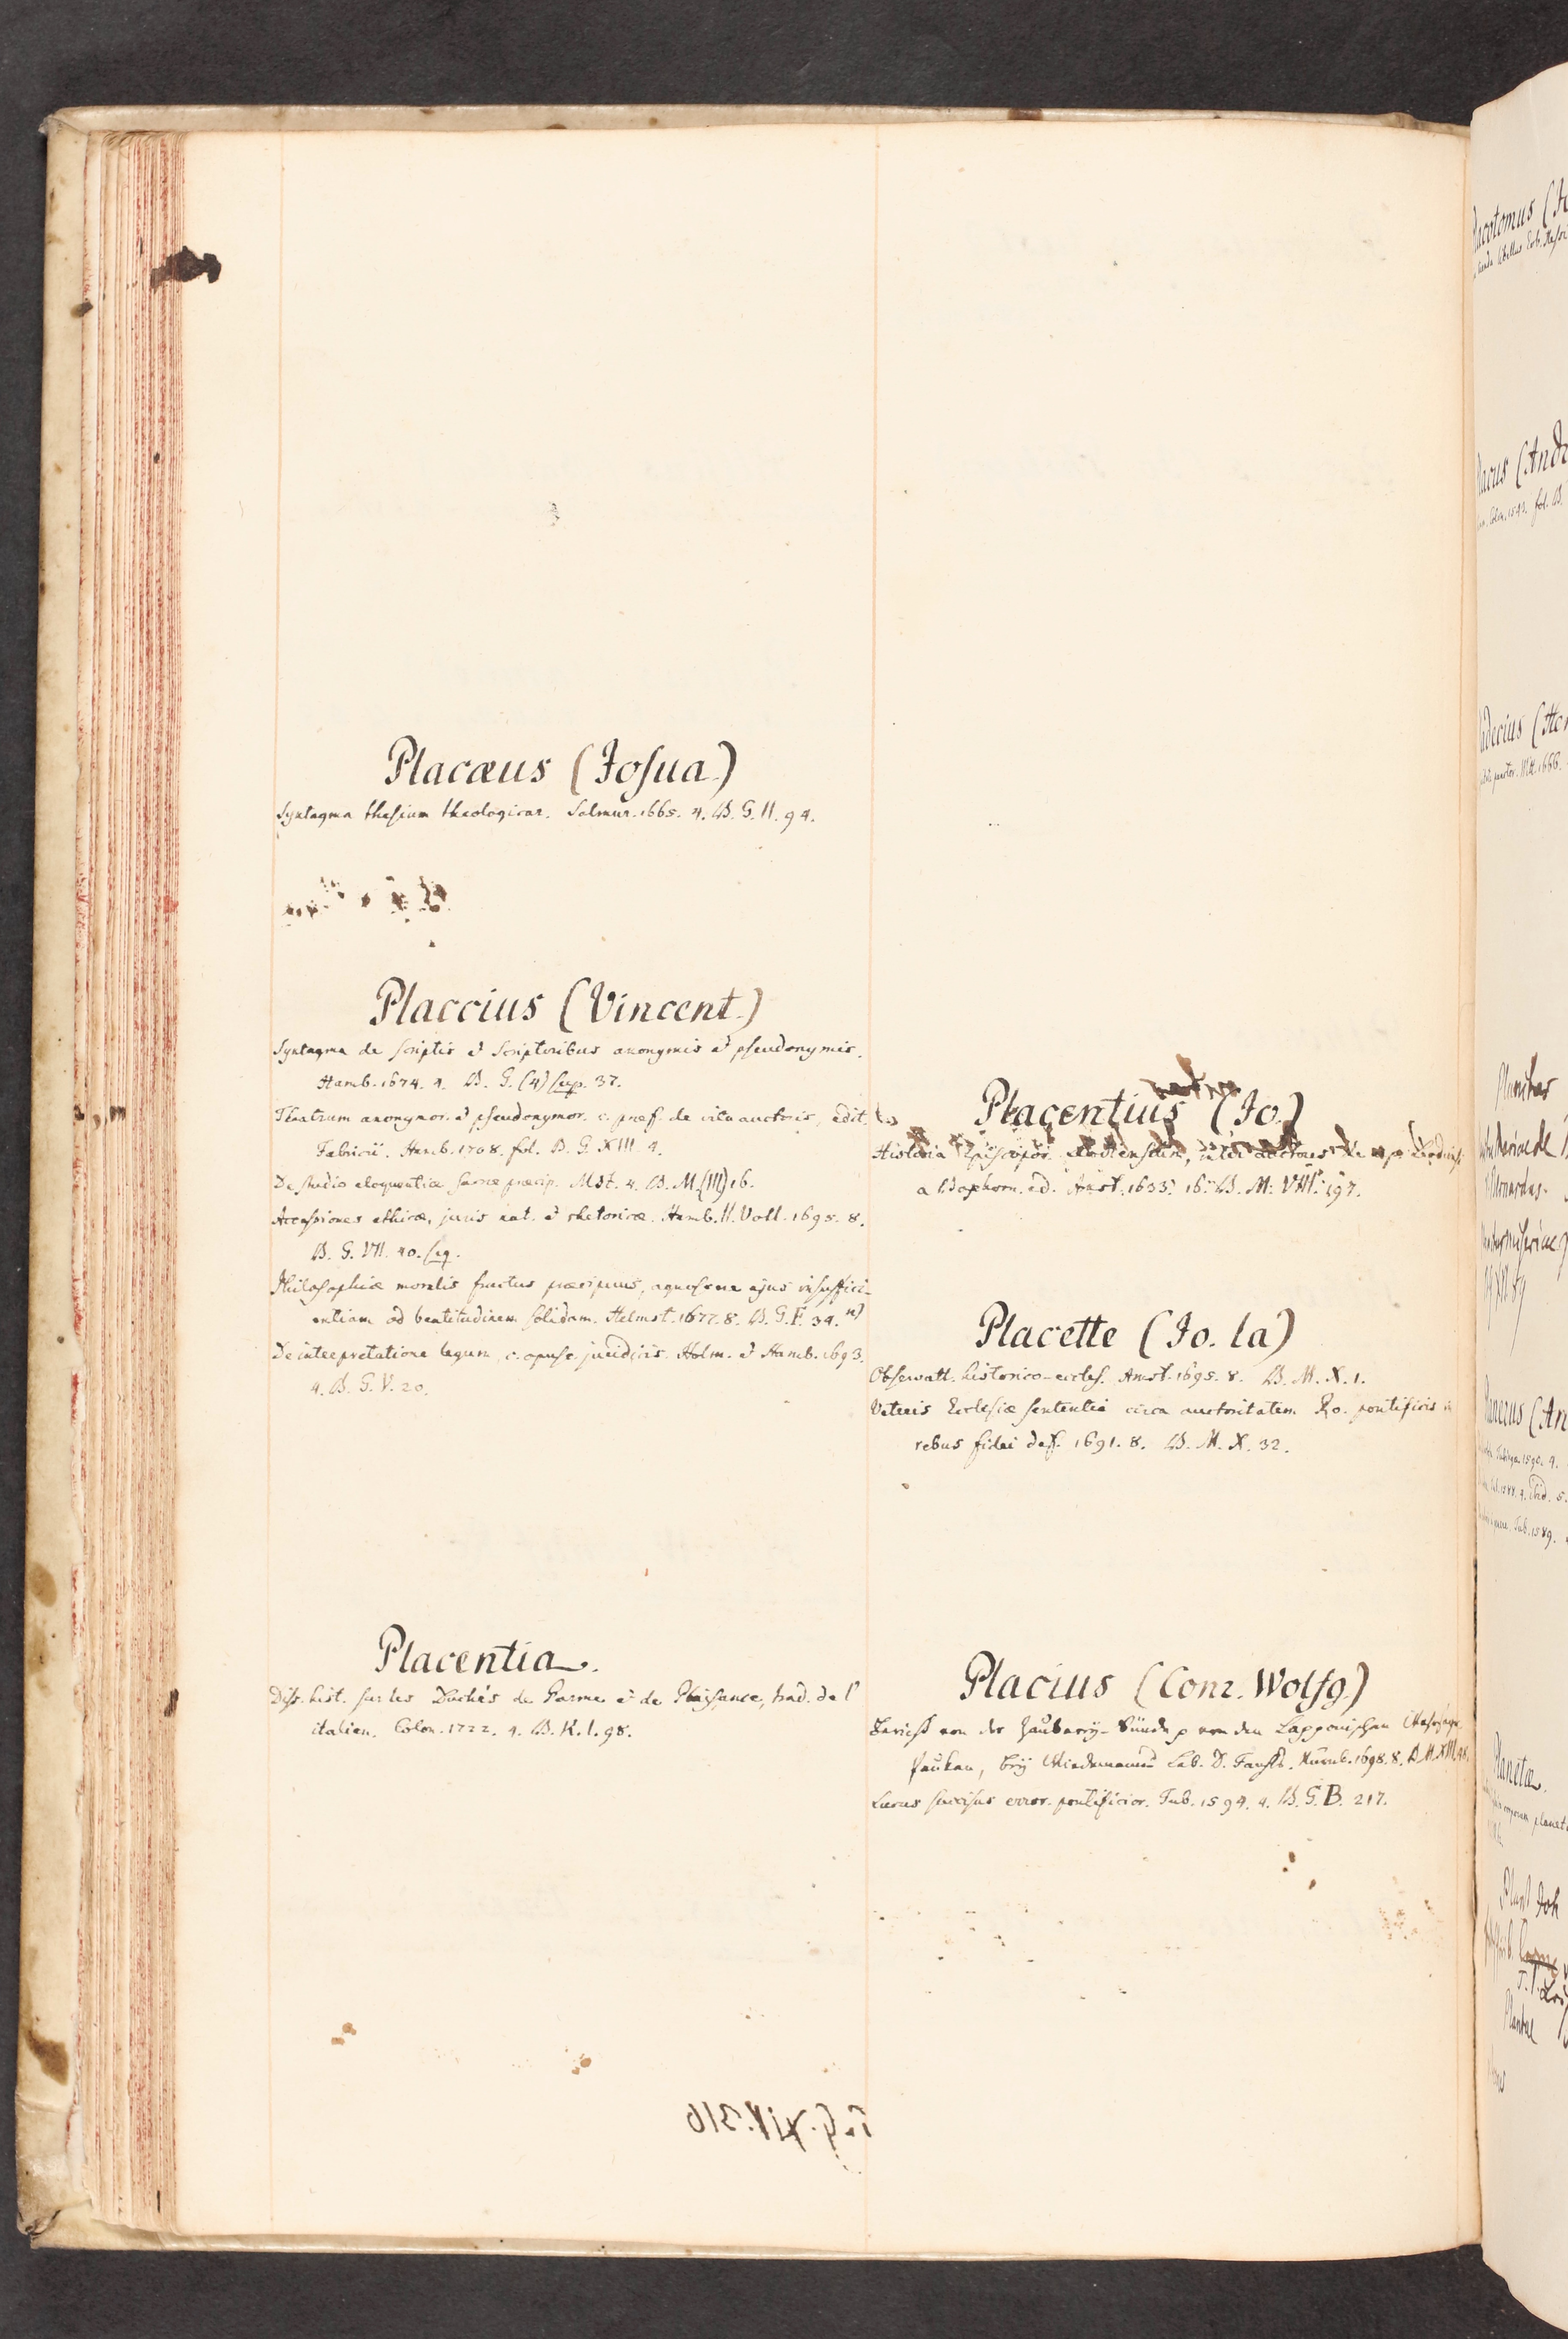 Placæus (Josua)
Syntagma thesium theologicar. Salmur. 1665. 4. B. G. II. 94.
Placcius (Vincent.)
Syntagma de scriptis et scriptoribus anonymis et pseudonymis.
Hamb. 1674. 4. B. G. (4) sup. 37.
Theatrum anonymor. et pseudonymor. c. præf. de vita auctoris, edit.
Fabricii. Hamb. 1708. fol. B. G. XIII. 4.
De studio eloquentiæ sacræ præcip. Mst. 4. B. M. (III) 16.
Accessiones ethicæ, juris nat. et rhetoricæ. Hamb. II. Voll. 1695. 8.
B. G. VII. 40. seq.
Philosophiæ moralis fructus præcipuus, agnoscere ejus insuffici-
entiam ad beatitudinem solidam. Helmst. 1677. 8. B. G. F. 34. n)
De interpretatione legum, c. opusc. juridicis. Holm. et Hamb. 1693.
4. B. G. V. 20.
Placentia.
Diss. hist. sur les Duchés de Parme et de Plaisance, trad. de l'
italien. Colon. 1722. 4. B. K. I. 98.
Placentius (Jo.)
Historia Episcopor.
a Boxhorn. ed. Amst. 1633. 16. B. M. VIII. 197.
Placette (Jo. la)
Observatt. historico-eccles. Amst. 1695. 8. B. M. X. 1.
Veteris Ecclesiæ sententia circa auctoritatem Ro. pontificis in
rebus fidei def. 1691. 8. B. M. X. 32.
Placius (Conr. Wolfg.)
Bericht von der Zauberey-Sünde von den Lapponischen
Paucken, bey Lab. D. Fausts. Nürnb. 1698. 8. B. M. XIII.
Lucus succisus error. pontificior. Tub. 1594. 4. B. G. B. 217.